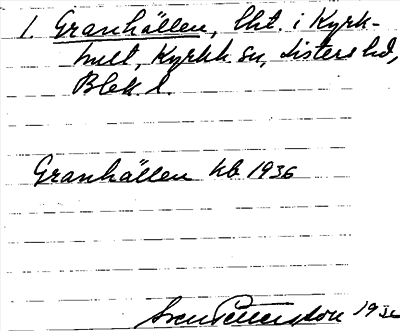 1. Granhällen, lht. i Kyrk-
hult, Kyrkh. sn, Listers hd,
Blek. l.
Granhällen hb 1936
Sven Pettersson 193